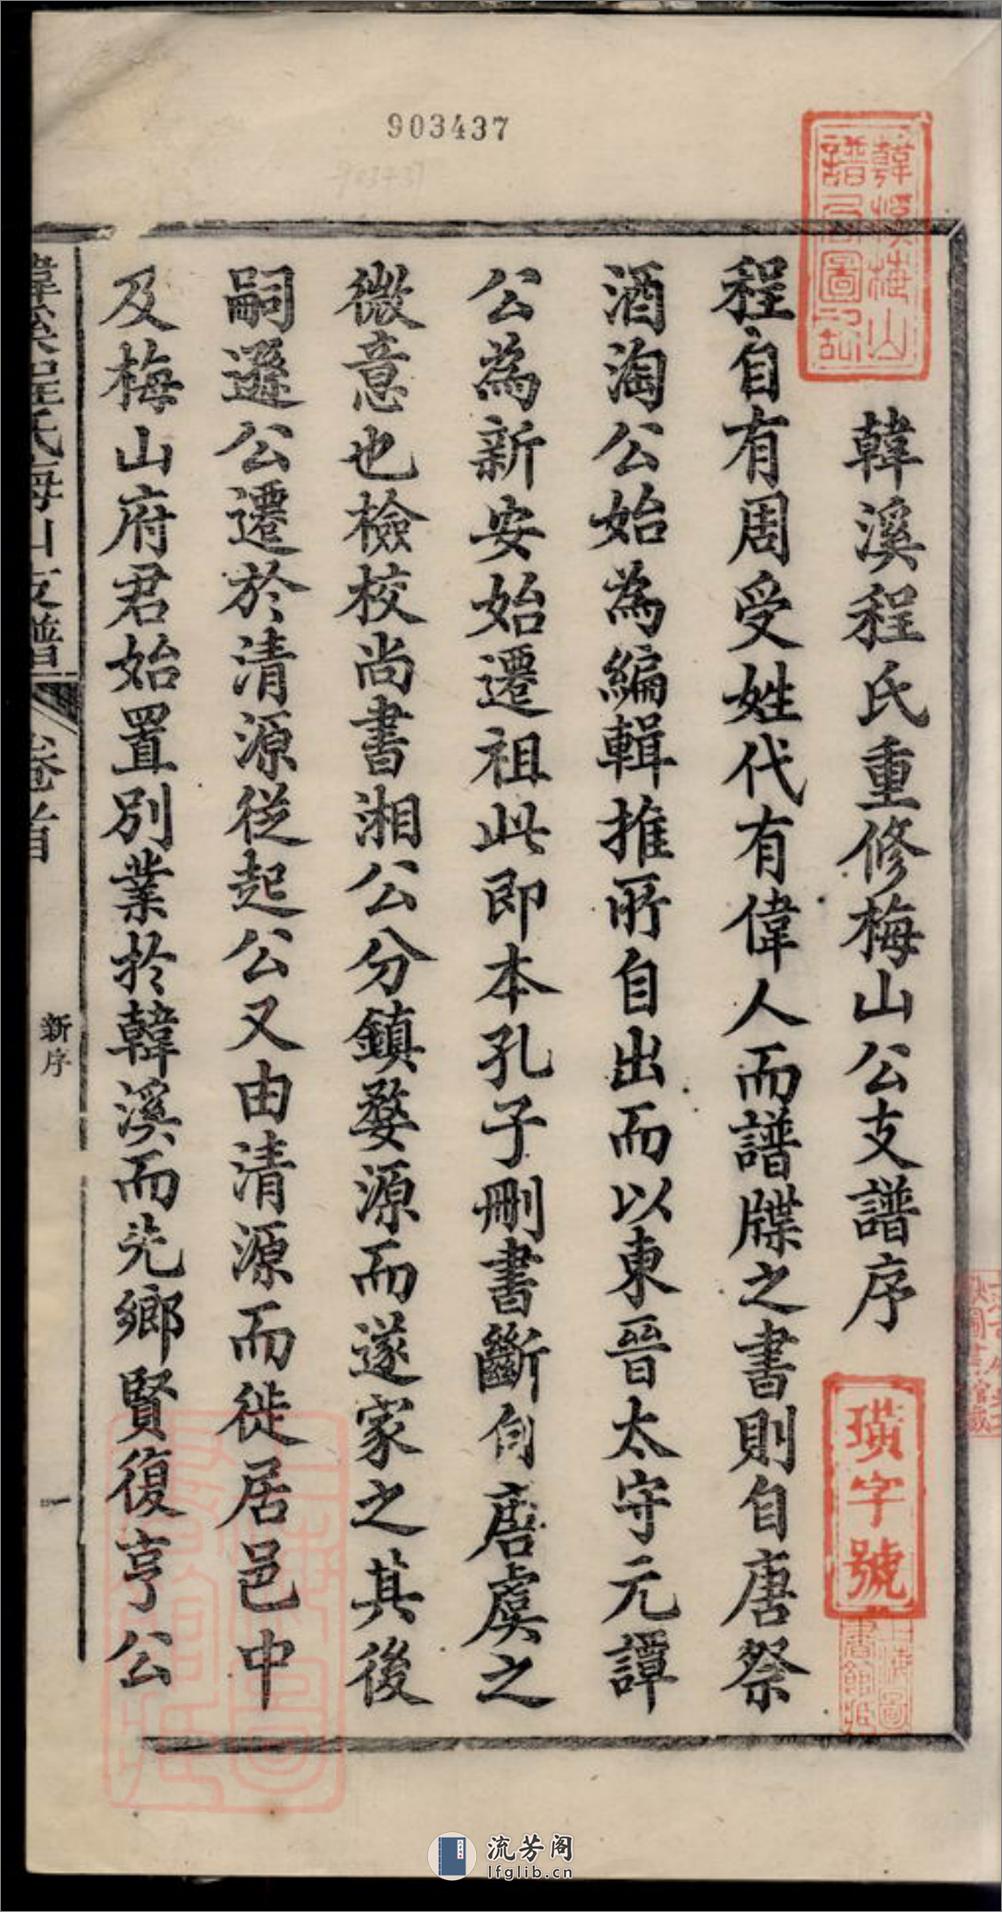 903437
韓溪梅山
譜局圖記
韓溪程氏重修梅山公支譜序
璜字號
程自有周受姓代有偉人而譜牒之書則自唐祭
酒淘公始為編輯推所自出而以東晉太守元譚
公為新安始遷祖此即本孔子刪書斷自唐虞之
微意也檢校尚書湘公分鎮婺源而遂家之其後
嗣遜公遷於清源從起公又由清源而徙居邑中
及梅山府君始置別業於韓溪而先鄉賢復亨公
韓溪程氏梅山支譜
卷首
新序
一
上海圖
書館藏
上海圖
書館藏
流芳阁
lfglib.cn